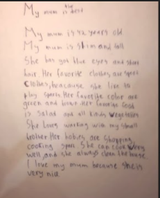 My mum is best
My mum is 42 years old
My mum is slim and tall
She has got blue eyes and short
hair. Her favorite clothes are sport
clothes, because she like to
play sports. Her favorite color are
green and blue. Her favorite food
is salad and all kinds vegetables
She loves working with my small
brother. Her hobbies are shopping
cooking, sport. She can cook very
well and she always clean the house
I love my mum because she is
very nice